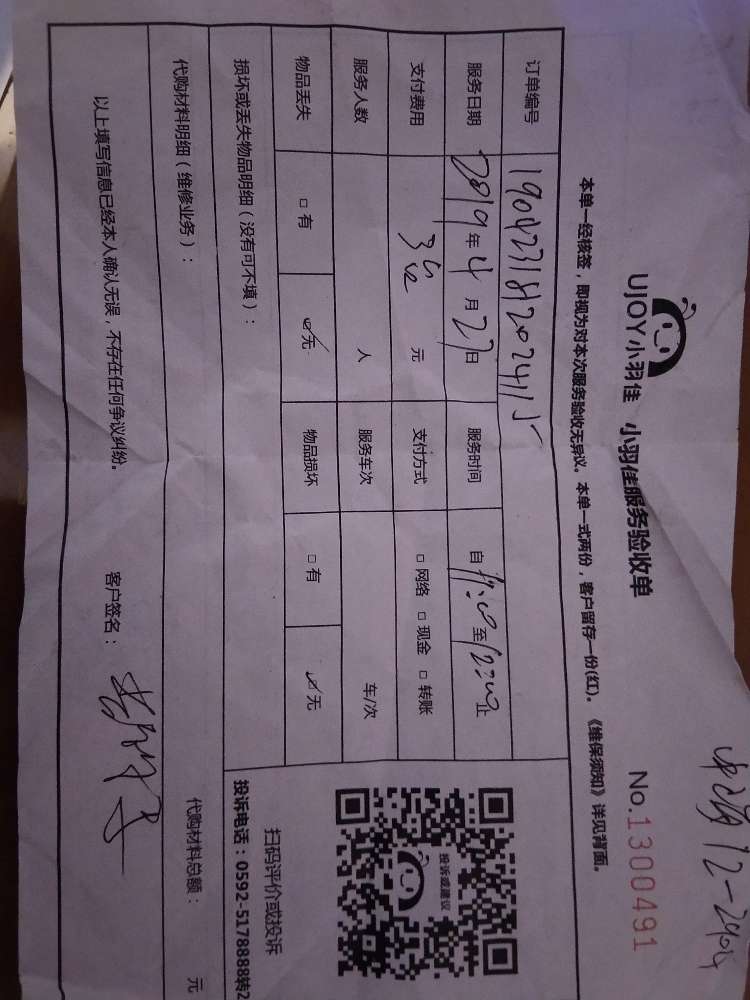 UJOY小羽佳 小羽佳服务验收单
No.1300491
本单一经核签，即视为对本次服务验收无异议。本单一式两份，客户留存一份(红)。《维保须知》详见背面。
订单编号
服务日期 2019年4月27日 服务时间 自11:00至12:00止
支付费用 元 支付方式 □网络 □现金 □转账
服务人数 人 服务车次 车/次
物品丢失 □有 ☑无 物品损坏 □有 ☑无
损坏或丢失物品明细（没有可不填）：
代购材料明细（维修业务）： 代购材料总额： 元
以上填写信息已经本人确认无误，不存在任何争议纠纷。 客户签名：
投诉或建议
扫码评价或投诉
投诉电话：0592-5178888转2